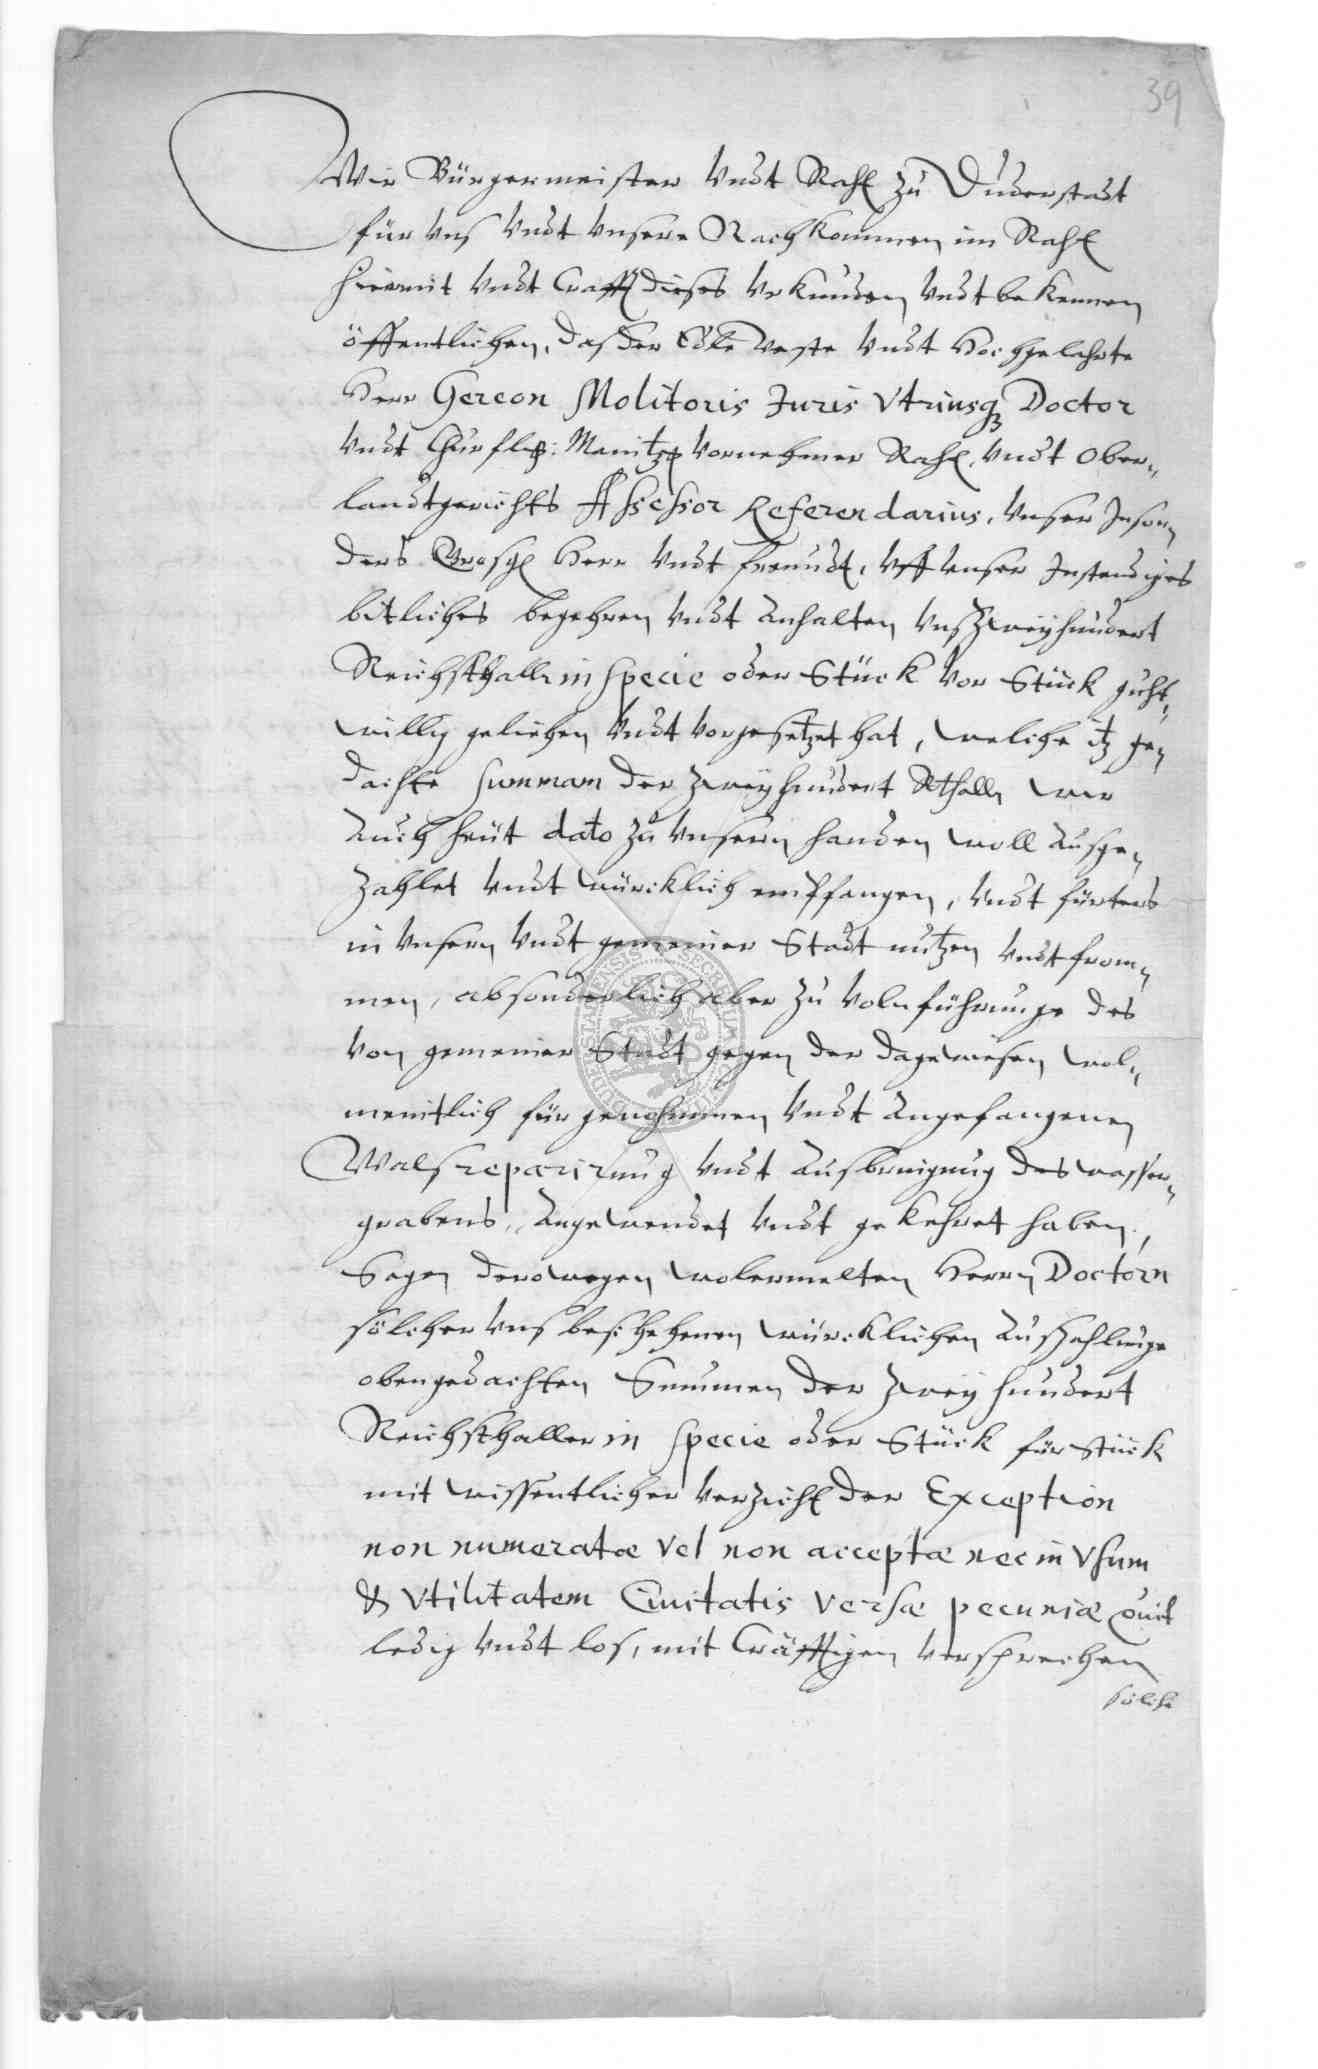 39
Wir Bürgermeister vndt Raht zu Duderstadt
für vns vndt vnsere Nachkommen im Raht
hiermit vndt Crafft dieses Vrkunden vndt bekennen
öffentlichen, daß der Edle Veste vndt Hochgelahrte
Herr Gereon Molitoris Juris Vtriusq3 Doctor
vndt Churfl: Maintz. vornehmer Raht, vndt Ober-
landtgerichts Assessor Referendarius, vnser Inson-
ders Grosg. Herr vndt freundt, vff vnser Instendiges
bitliches begehren vndt Anhalten vns Zweyhundert
Reichsthall. in specie oder Stück vor Stück guht-
willig geliehen vndt vorgesetzet hat, welche itz ge-
dachte summam der Zweyhundert Rthall. wir
Auch heüt dato zu vnsern handen woll Ausge-
zahlet vndt würcklich empfangen, vndt fürters
in vnsern vndt gemeiner Stadt nutzen vndt from-
men, absonderlich aber zu Volnführunge des
von gemeiner Stadt gegen der dagewiesen wol-
meintlich fürgenohmmen vndt Angefangenen
Walsreparirung vndt Ausbringung des wasser-
grabens, Angewendet vndt gekehret haben,
Sagen derowegen wolermelten Herrn Doctorn
sölcher vns beschehenen würcklichen Auszahlunge
obengedachten Summen der Zweyhundert
Reichsthaller in specie oder Stück für Stück
mit wissentlicher Verzicht der Exception
non numeratæ vel non acceptæ nec in Vsum
& Vtilitatem Ciuitatis versæ pecuniæ quit
ledig vndt los, mit Cräfftigen versprechen
sölche